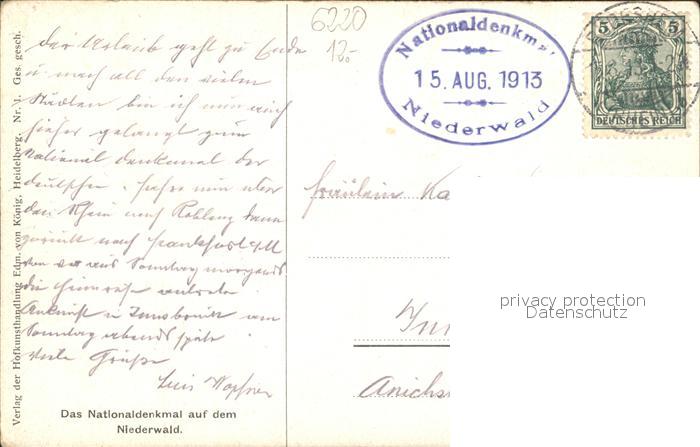 6220
12.-
Nationaldenkmal
15. AUG. 1913
Niederwald
5 5
DEUTSCHES REICH
Der Urlaub geht zu Ende
u nach all den vielen
Städten bin ich nun auch
hieher gelangt zum
National denkmal der
Deutschen. Fahre nun über
den Rhein nach Koblenz dann
zurück nach Frankfurt a/M
von wo aus Sonntag morgends
die Heimreise antrete.
Ankunft in Innsbruck am
Sonntag abends spät
Viele Grüße
Luis
Fräulein Ka
Inn
Anichs
Das Nationaldenkmal auf dem
Niederwald.
Verlag der Hofkunsthandlung Edm. von König, Heidelberg. Nr. 1. Ges. gesch.
privacy protection
Datenschutz